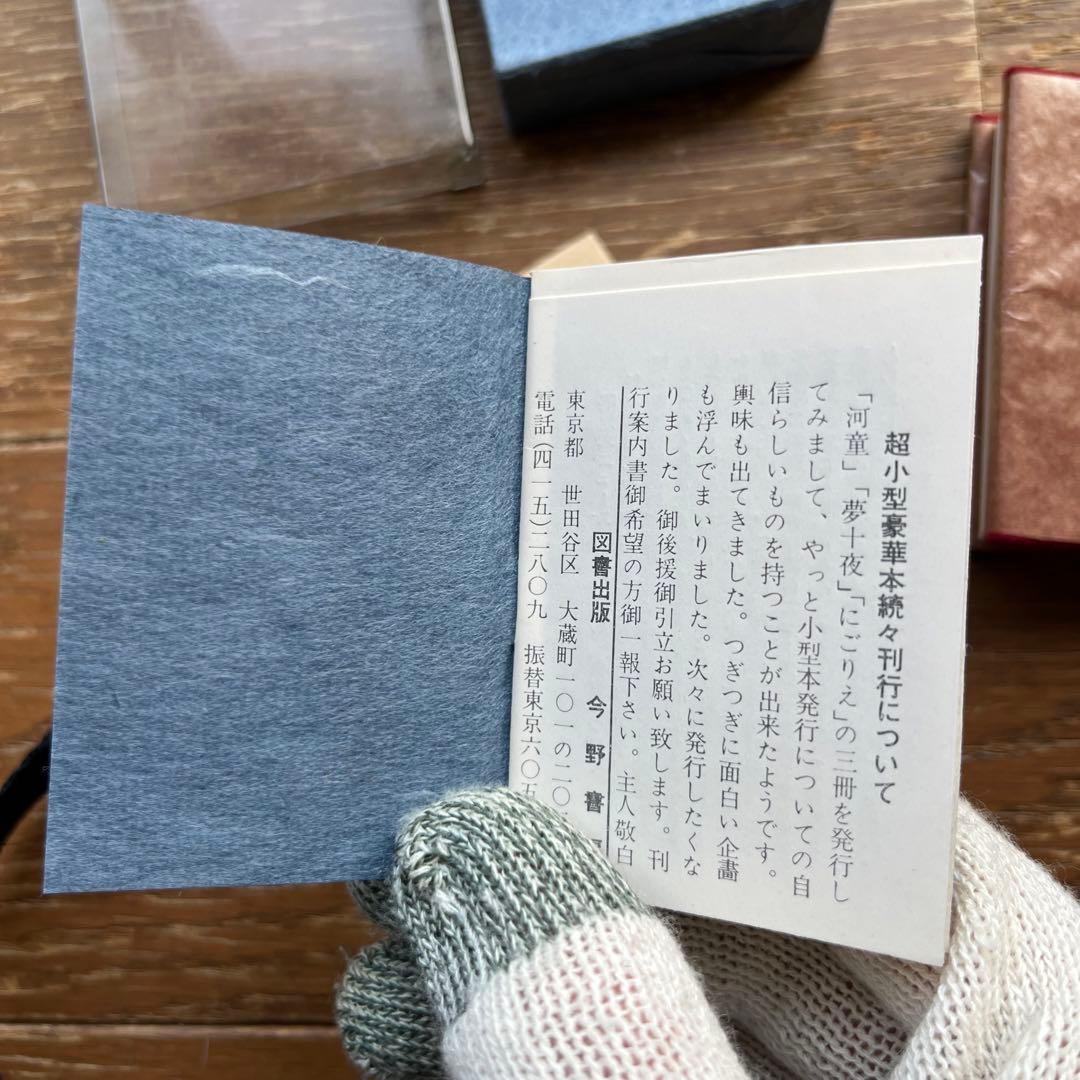 超小型豪華本続々刊行について
「河童」「夢十夜」「にごりえ」の三冊を発行し
てみまして、やっと小型本発行についての自
信らしいものを持つことが出来たようです。
興味も出てきました。つぎつぎに面白い企畫
も浮んでまいりました。次々に発行したくな
りました。御後援御引立お願い致します。刊
行案内書御希望の方御一報下さい。主人敬白
図書出版 今野書
東京都 世田谷区 大蔵町一〇一の二〇
電話(四一五)二八〇九 振替東京六〇五